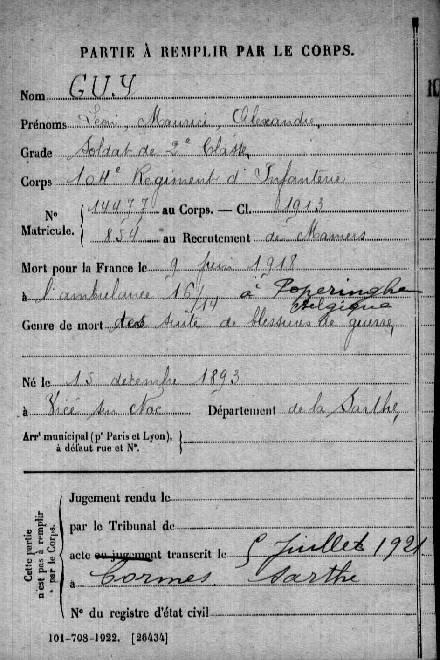 PARTIE À REMPLIR PAR LE CORPS.
Nom GUY
Prénoms Léon, Maurice, Alexandre,
Grade Soldat de 2e Classe,
Corps 104e Régiment d'Infanterie
N° Matricule. 14477 au Corps. — Cl. 1913
854 au Recrutement de Mamers
Mort pour la France le 9 Juin 1918
à l'ambulance 16/14 à Poperinghe
Belgique
Genre de mort des suite de blessures de guerre,
Né le 15 décembre 1893
à Département de la Sarthe,
Arrt municipal (pr Paris et Lyon), à défaut rue et N°.
Cette partie n'est pas à remplir par le Corps.
Jugement rendu le
par le Tribunal de
acte ou jugement transcrit le 5 Juillet 1921
à Cormes Sarthe
N° du registre d'état civil
101-708-1922. [26434]